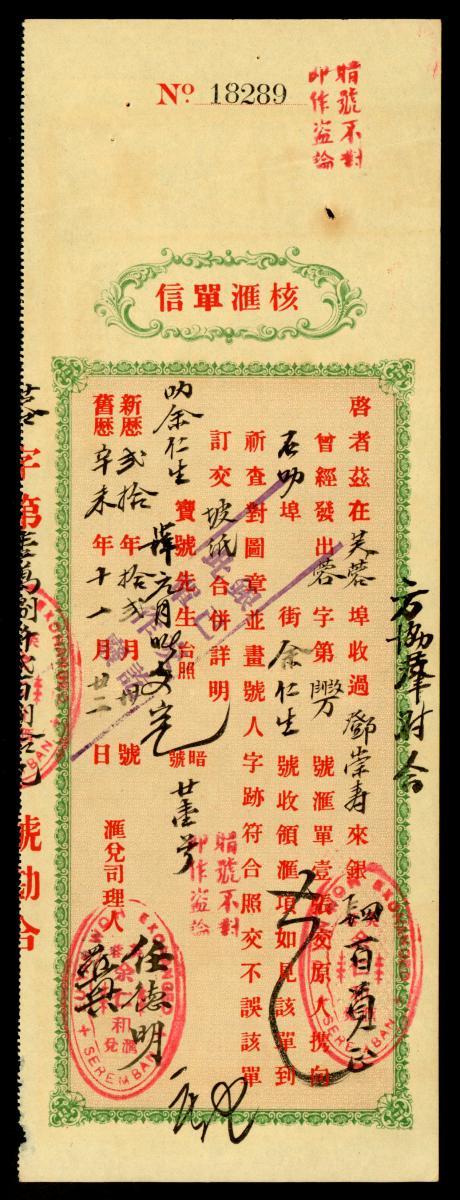 Nº 18289
暗號不對
即作盜論
核滙單信
啓者茲在芙蓉埠收過鄧崇壽來銀四百員正
曾經發出蓉字第號滙單壹張交原人携向
石叻埠街余仁生號收領滙項如見該單到
祈查對圖章並畫號人字跡符合照交不誤該單
訂交坡紙合併詳明
叻余仁生寶號先生台照
暗號
暗號不對
即作盜論
新歷弍拾年拾弍月號
舊歷辛未年十一月廿二日
滙兌司理人任德明
余仁和
滙兌
EXCHANGE
SEREMBAN
字第壹萬捌仟弍百捌拾九號勘合